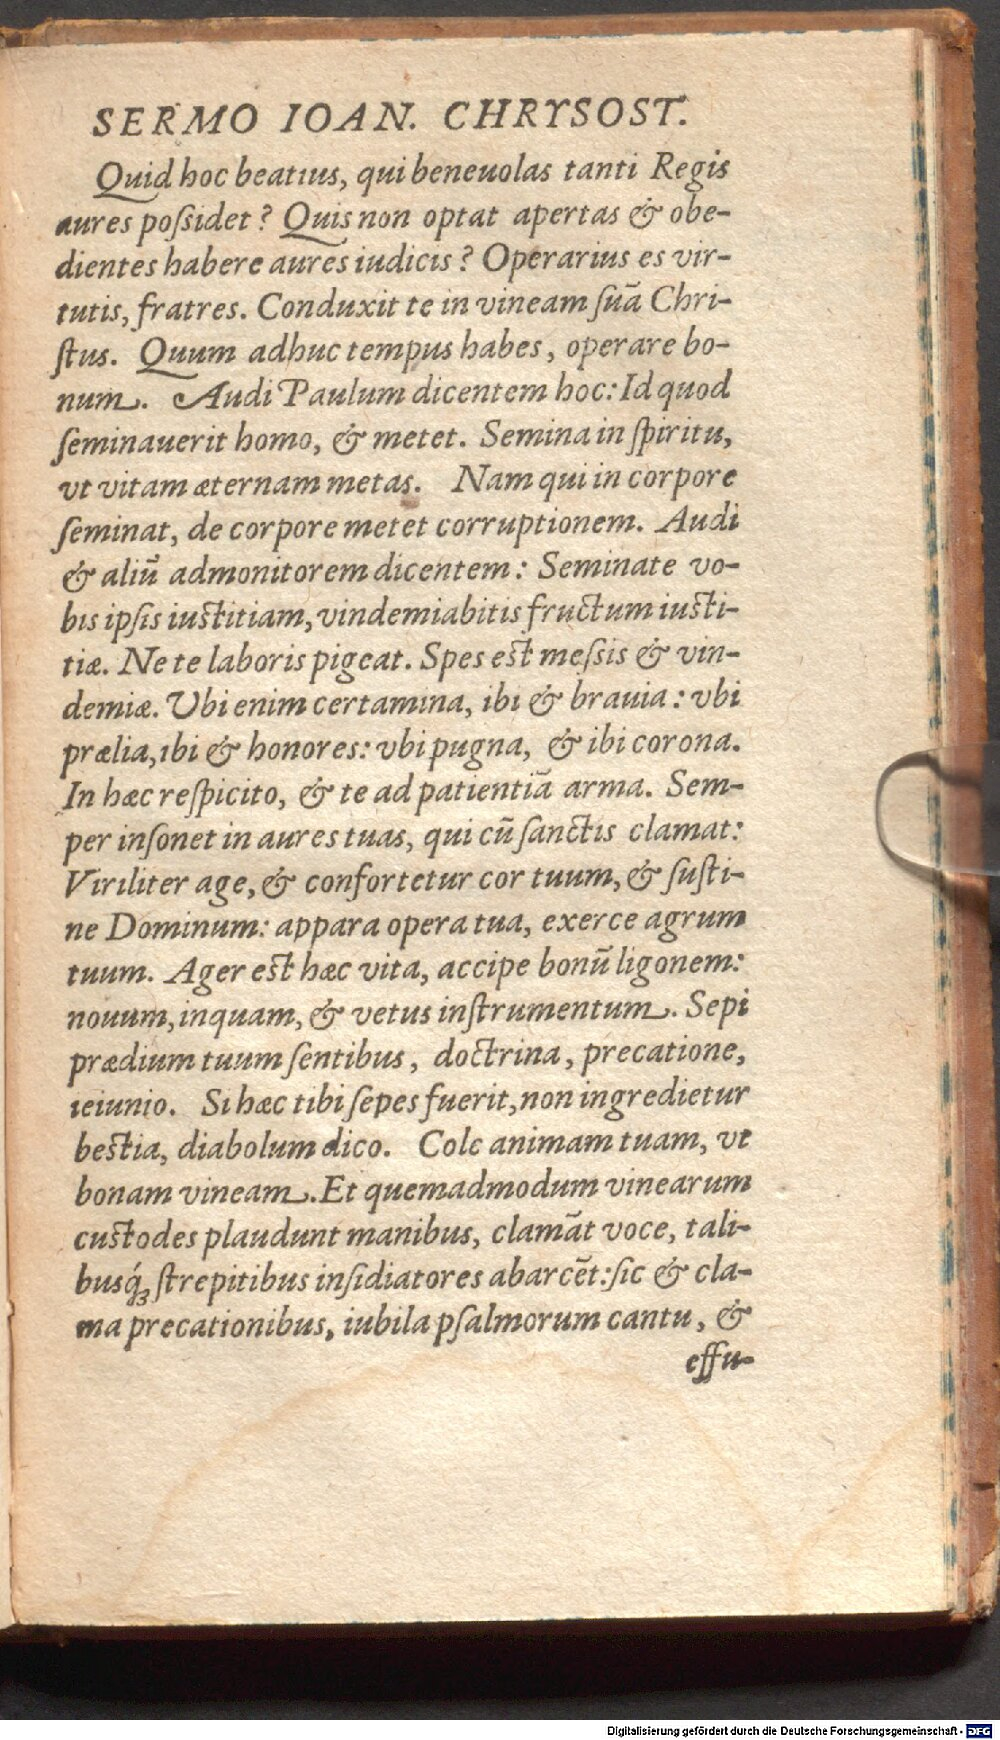 SERMO IOAN. CHRYSOST.
Quid hoc beatius, qui beneuolas tanti Regis
aures poſsidet? Quis non optat apertas & obe-
dientes habere aures iudicis? Operarius es vir-
tutis, fratres. Conduxit te in vineam ſuā Chri-
ſtus. Quum adhuc tempus habes, operare bo-
num. Audi Paulum dicentem hoc: Id quod
ſeminauerit homo, & metet. Semina in ſpiritu,
vt vitam æternam metas. Nam qui in corpore
ſeminat, de corpore metet corruptionem. Audi
& aliū admonitorem dicentem: Seminate vo-
bis ipſis iuſtitiam, vindemiabitis fructum iuſti-
tiæ. Ne te laboris pigeat. Spes eſt meſsis & vin-
demiæ. Vbi enim certamina, ibi & brauia: vbi
prælia, ibi & honores: vbi pugna, & ibi corona.
In hæc reſpicito, & te ad patientiā arma. Sem-
per inſonet in aures tuas, qui cū ſanctis clamat:
Viriliter age, & confortetur cor tuum, & ſuſti-
ne Dominum: appara opera tua, exerce agrum
tuum. Ager eſt hæc vita, accipe bonū ligonem:
nouum, inquam, & vetus inſtrumentum. Sepi
prædium tuum ſentibus, doctrina, precatione,
ieiunio. Si hæc tibi ſepes fuerit, non ingredietur
beſtia, diabolum dico. Cole animam tuam, vt
bonam vineam. Et quemadmodum vinearum
cuſtodes plaudunt manibus, clamāt voce, tali-
busq́ꝫ ſtrepitibus inſidiatores abarcēt: ſic & cla-
ma precationibus, iubila pſalmorum cantu, &
effu-
Digitalisierung gefördert durch die Deutsche Forschungsgemeinschaft - DFG